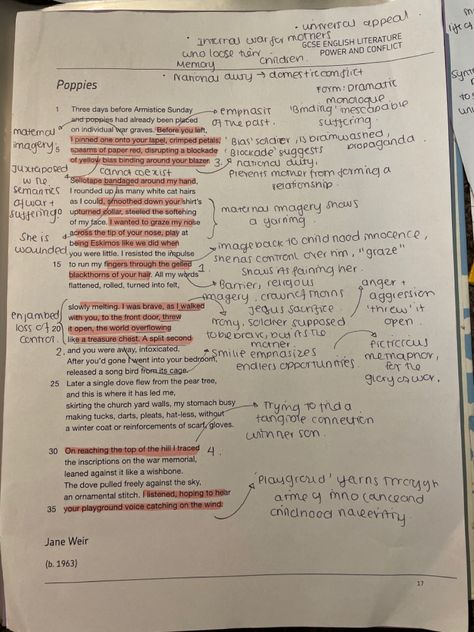 • universal appeal
• Internal war for mothers
who loose their children.
GCSE ENGLISH LITERATURE
POWER AND CONFLICT
Memory
• National duty → domestic conflict
Form: Dramatic
monologue
Poppies
1 Three days before Armistice Sunday
and poppies had already been placed
on individual war graves. Before you left,
I pinned one onto your lapel, crimped petals,
5 spasms of paper red, disrupting a blockade
of yellow bias binding around your blazer.
Sellotape bandaged around my hand,
I rounded up as many white cat hairs
as I could, smoothed down your shirt's
10 upturned collar, steeled the softening
of my face. I wanted to graze my nose
across the tip of your nose, play at
being Eskimos like we did when
you were little. I resisted the impulse
15 to run my fingers through the gelled
blackthorns of your hair. All my words
flattened, rolled, turned into felt,
slowly melting. I was brave, as I walked
with you, to the front door, threw
20 it open, the world overflowing
like a treasure chest. A split second
and you were away, intoxicated.
After you'd gone I went into your bedroom,
released a song bird from its cage.
25 Later a single dove flew from the pear tree,
and this is where it has led me,
skirting the church yard walls, my stomach busy
making tucks, darts, pleats, hat-less, without
a winter coat or reinforcements of scarf, gloves.
30 On reaching the top of the hill I traced
the inscriptions on the war memorial,
leaned against it like a wishbone.
The dove pulled freely against the sky,
an ornamental stitch. I listened, hoping to hear
35 your playground voice catching on the wind.
Jane Weir
(b. 1963)
17
maternal
imagery
Juxtaposed
w the
semantics
of war +
suffering
She is
wounded
enjambed
loss of
control
emphasis
of the past.
'Binding' inescapable
suffering.
'Bias' soldier, is brainwashed,
propaganda
'Blockade' suggests
3. national duty.
Prevents mother from forming a
relationship.
cannot coexist
maternal imagery shows
a yearning.
image back to childhood innocence,
she has control over him, "graze"
shows as paining her.
1.
Barrier, religious
imagery, crown of thorns
Jesus sacrifice.
anger +
aggression
'threw' it
open.
Irony, soldier supposed
to be brave, but its the
mother.
2.
Smilie emphasizes
endless opportunities
metaphor,
for the
glory of war.
Trying to find a
tangible connection
with her son.
4.
'playground' yearns through
a time of innocence and
childhood naivety